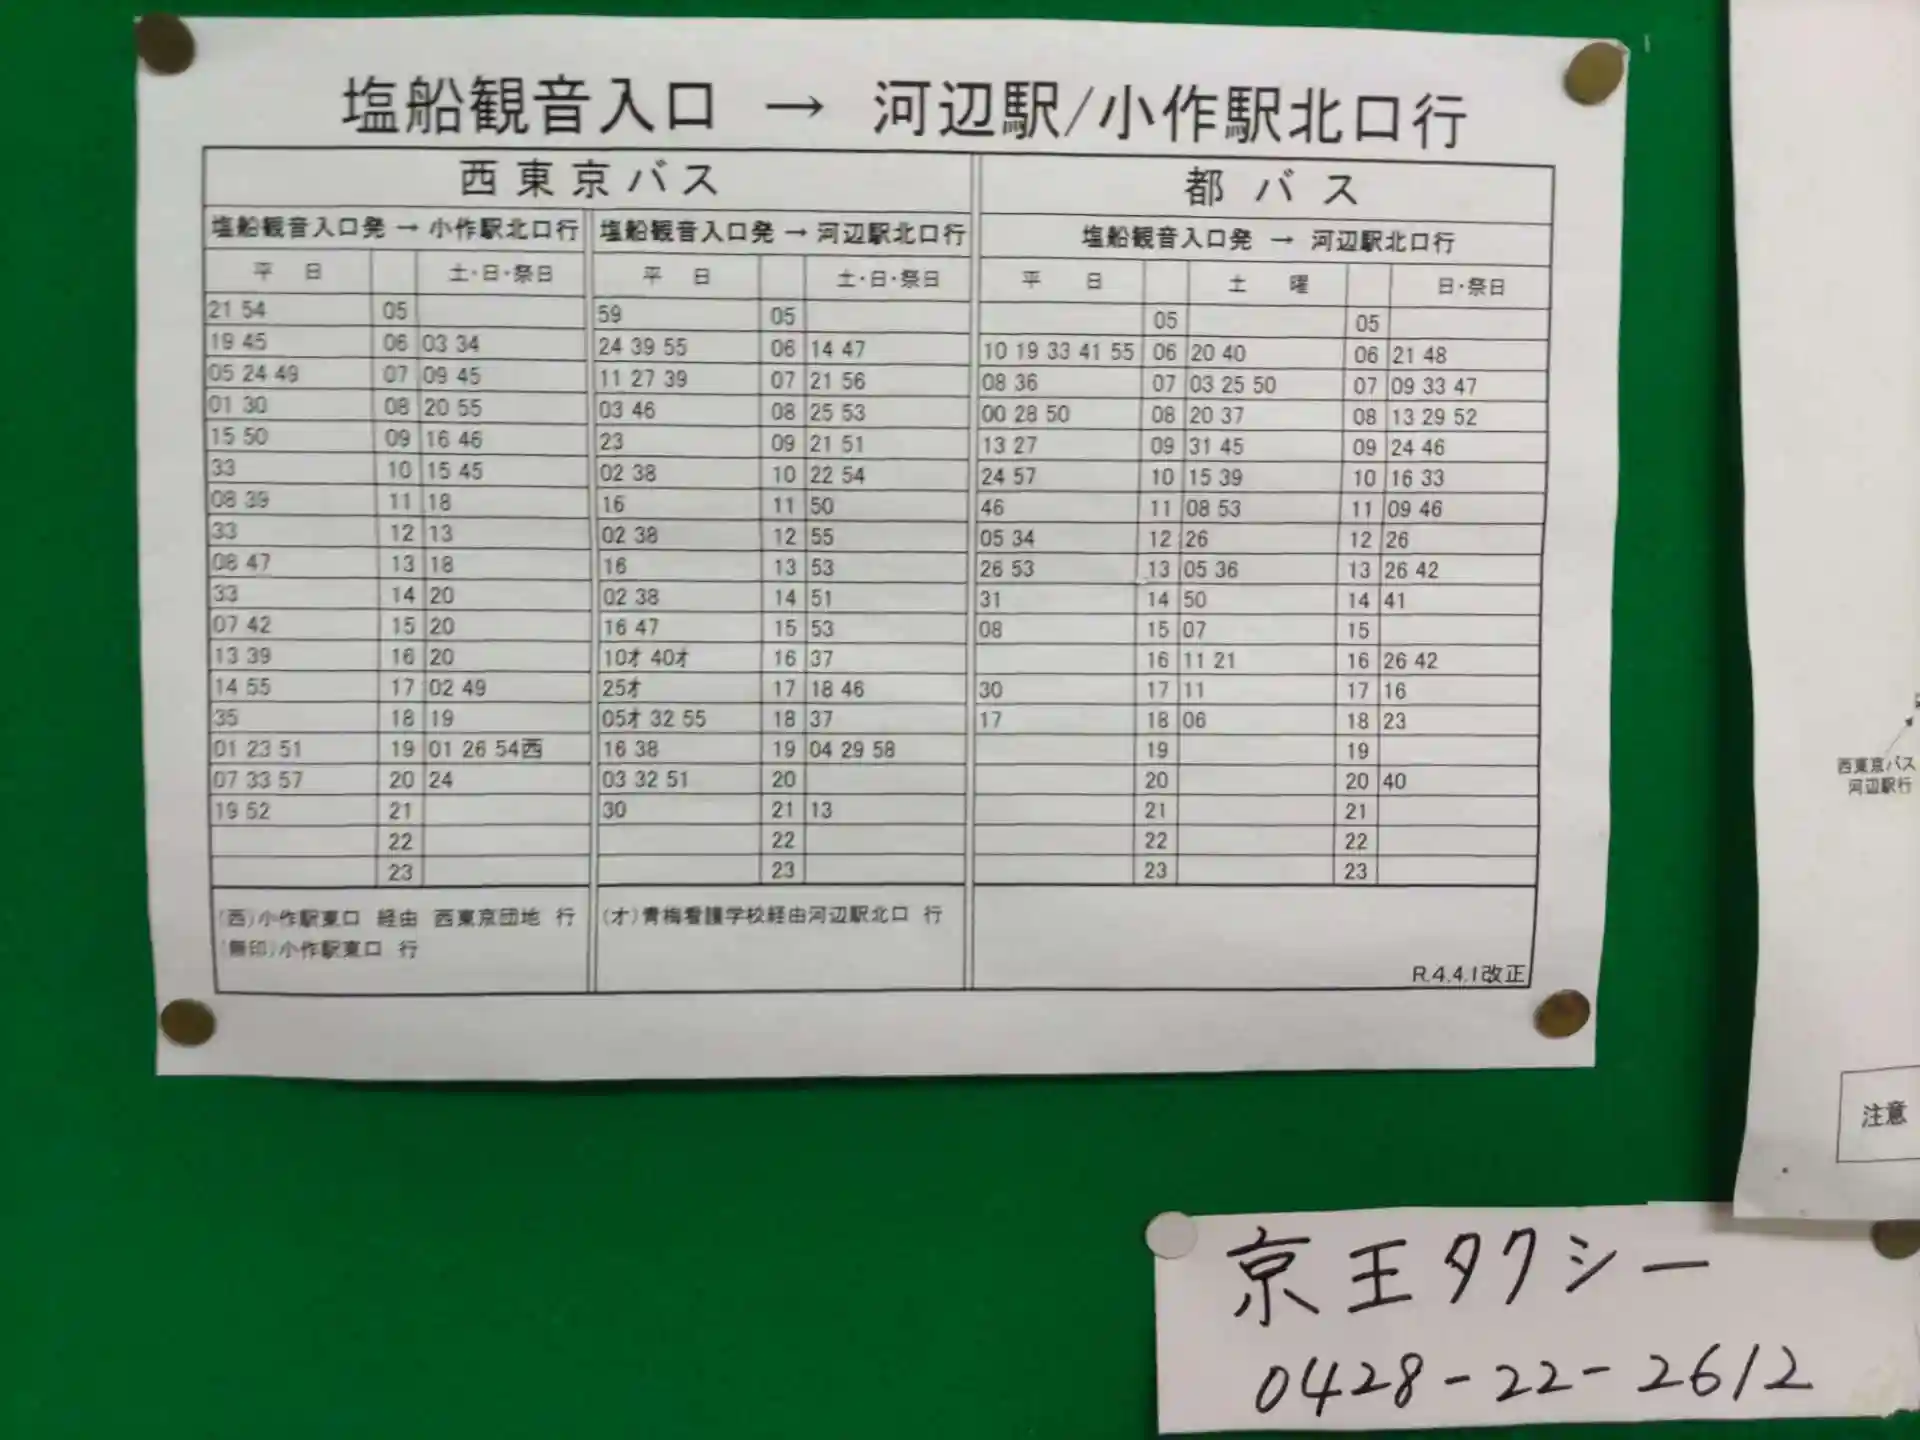 塩船観音入口 → 河辺駅/小作駅北口行
西東京バス 都バス
塩船観音入口発 → 小作駅北口行 塩船観音入口発 → 河辺駅北口行 塩船観音入口発 → 河辺駅北口行
平日 土・日・祭日 平日 土・日・祭日 平日 土曜 日・祭日
21 54 05 59 05 05 05
19 45 06 03 34 24 39 55 06 14 47 10 19 33 41 55 06 20 40 06 21 48
05 24 49 07 09 45 11 27 39 07 21 56 08 36 07 03 25 50 07 09 33 47
01 30 08 20 55 03 46 08 25 53 00 28 50 08 20 37 08 13 29 52
15 50 09 16 46 23 09 21 51 13 27 09 31 45 09 24 46
33 10 15 45 02 38 10 22 54 24 57 10 15 39 10 16 33
08 39 11 18 16 11 50 46 11 08 53 11 09 46
33 12 13 02 38 12 55 05 34 12 26 12 26
08 47 13 18 16 13 53 26 53 13 05 36 13 26 42
33 14 20 02 38 14 51 31 14 50 14 41
07 42 15 20 16 47 15 53 08 15 07 15
13 39 16 20 10オ 40オ 16 37 16 11 21 16 26 42
14 55 17 02 49 25オ 17 18 46 30 17 11 17 16
35 18 19 05オ 32 55 18 37 17 18 06 18 23
01 23 51 19 01 26 54西 16 38 19 04 29 58 19 19
07 33 57 20 24 03 32 51 20 20 20 40
19 52 21 30 21 13 21 21
22 22 22 22
23 23 23 23
(西)小作駅東口 経由 西東京団地 行 (オ)青梅看護学校経由河辺駅北口 行
(無印)小作駅東口 行
R.4.4.1改正
西東京バス
河辺駅行
注意
京王タクシー
0428-22-2612